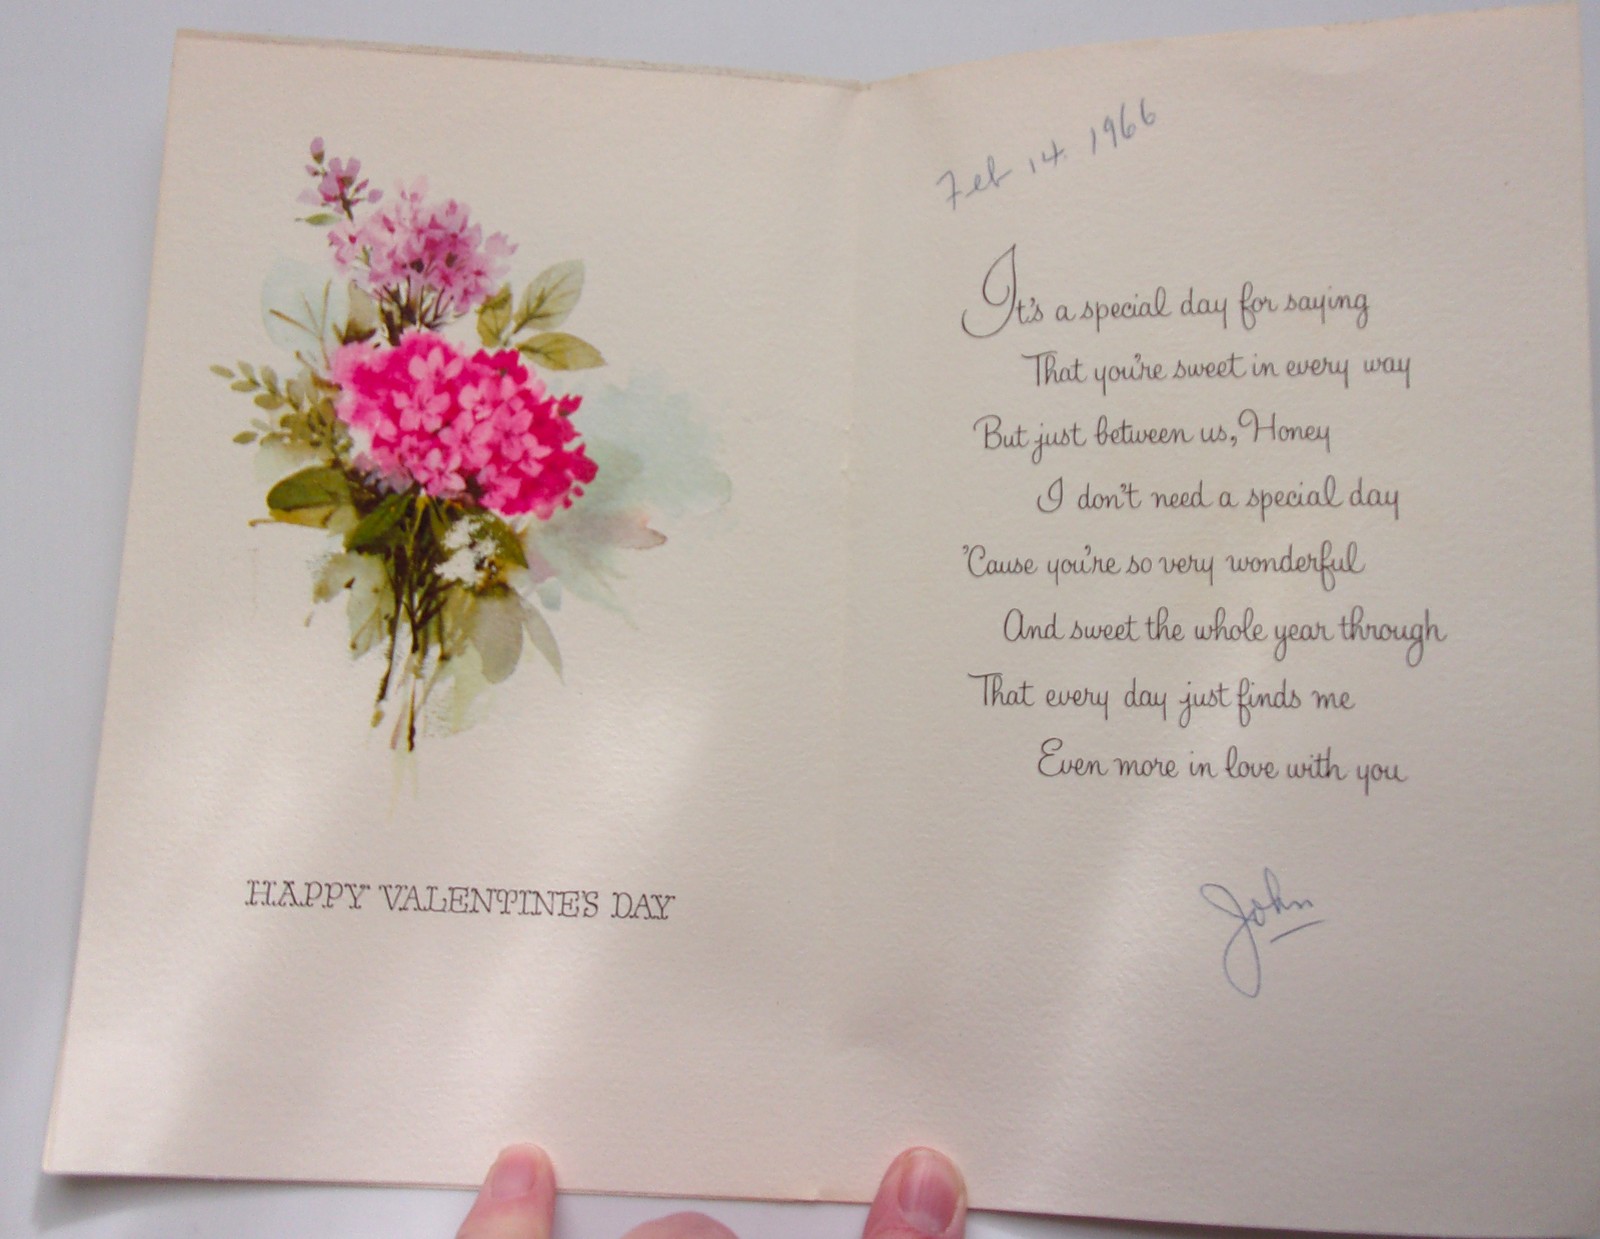 HAPPY VALENTINE'S DAY
Feb 14 1966
It's a special day for saying
That you're sweet in every way
But just between us, Honey
I don't need a special day
'Cause you're so very wonderful
And sweet the whole year through
That every day just finds me
Even more in love with you
John